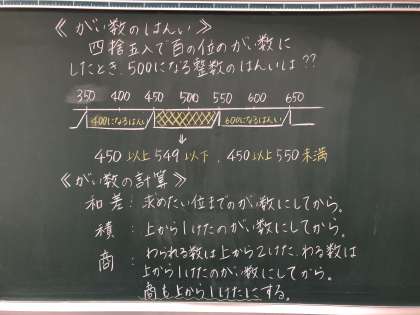 ≪がい数のはんい≫
四捨五入で百の位のがい数に
したとき、500になる整数のはんいは??
350 400 450 500 550 600 650
400になるはんい 600になるはんい
⇓
450以上549以下、450以上550未満
≪がい数の計算≫
和差：求めたい位までのがい数にしてから。
積：上から1けたのがい数にしてから。
商：わられる数は上から2けた、わる数は
上から1けたのがい数にしてから。
商も上から1けたにする。